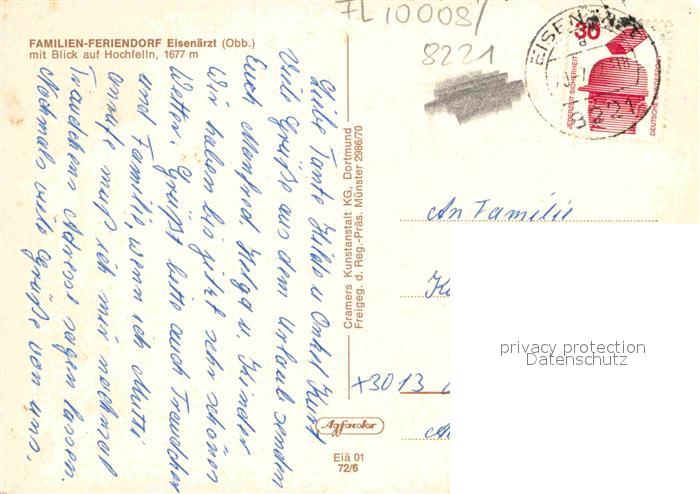 FL 10008/
8221
FAMILIEN-FERIENDORF Eisenärzt (Obb.)
mit Blick auf Hochfelln, 1677 m
Liebe Tante Hilde u. Onkel Kurt
Viele Grüße aus dem Urlaub senden
Euch Manfred, Helga u. Kinder
Wir haben bis jetzt sehr schönes
Wetter. Grüßt bitte auch Traudchen
und Familie, wenn ich Mutti
anrufe muß ich mir nochmal
Traudchens Adresse sagen lassen.
Nochmals viele Grüße von uns.
Cramers Kunstanstalt KG, Dortmund
Freigeg. d. Reg.-Präs. Münster 2986/70
Agfacolor
Eiä 01
72/6
EISENÄRZT
8221
30
JEDERZEIT SICHERHEIT
DEUTSCHE BUNDESPOST
An Familie
3013
privacy protection
Datenschutz